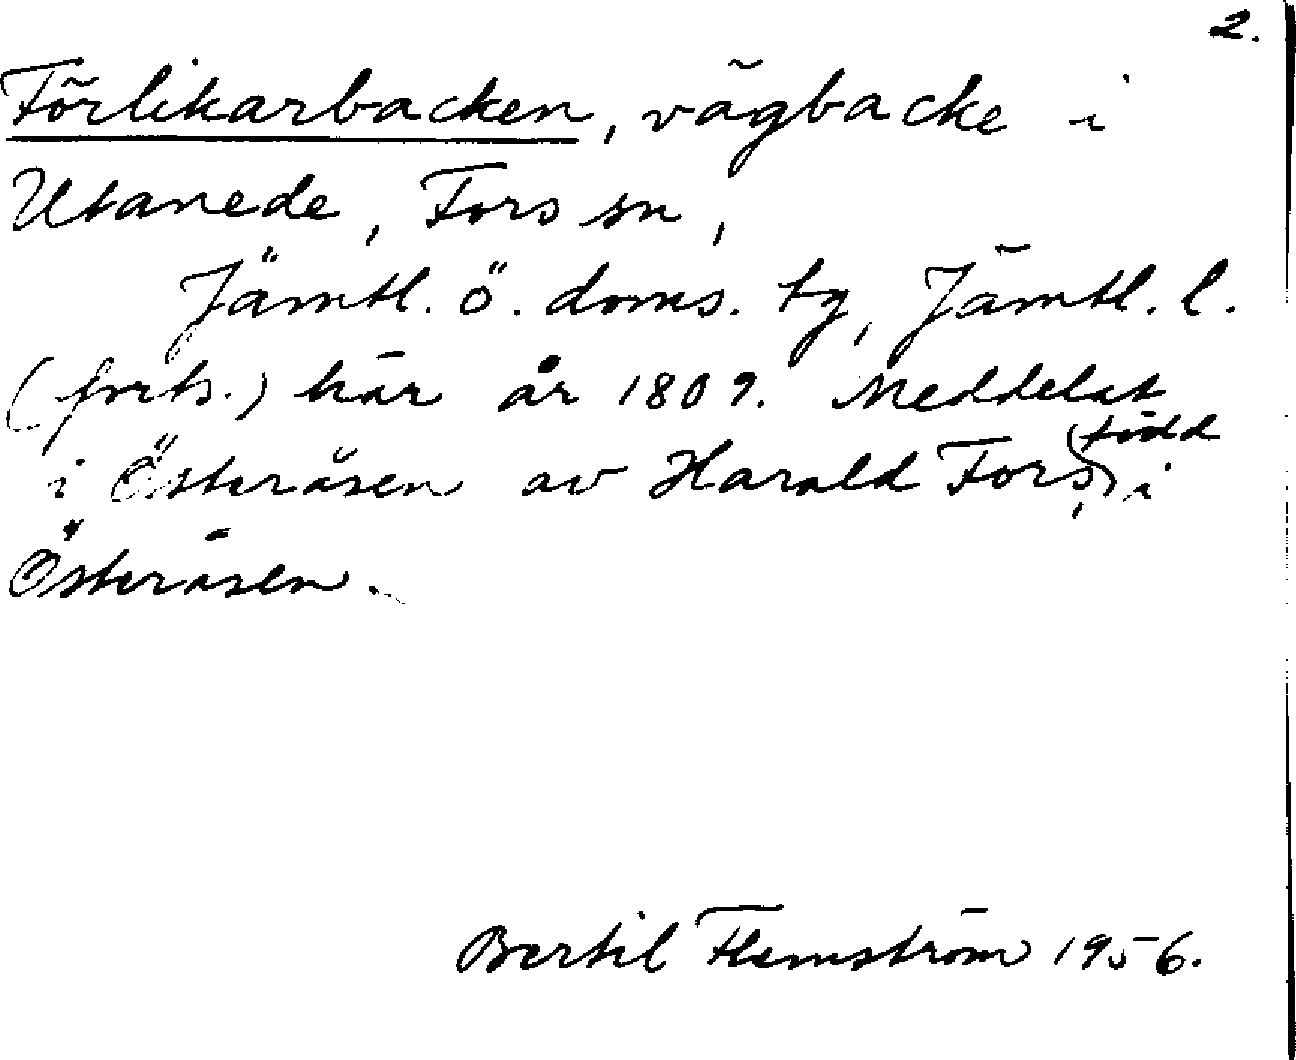 2.
Förlikarbacken, vägbacke i
Utanede, Fors sn,
Jämtl. ö. doms. tg, Jämtl. l.
(forts.) här år 1809. Meddelat
i Österåsen av Harald Fors, (född) i
Österåsen.
Bertil Flemström 1956.